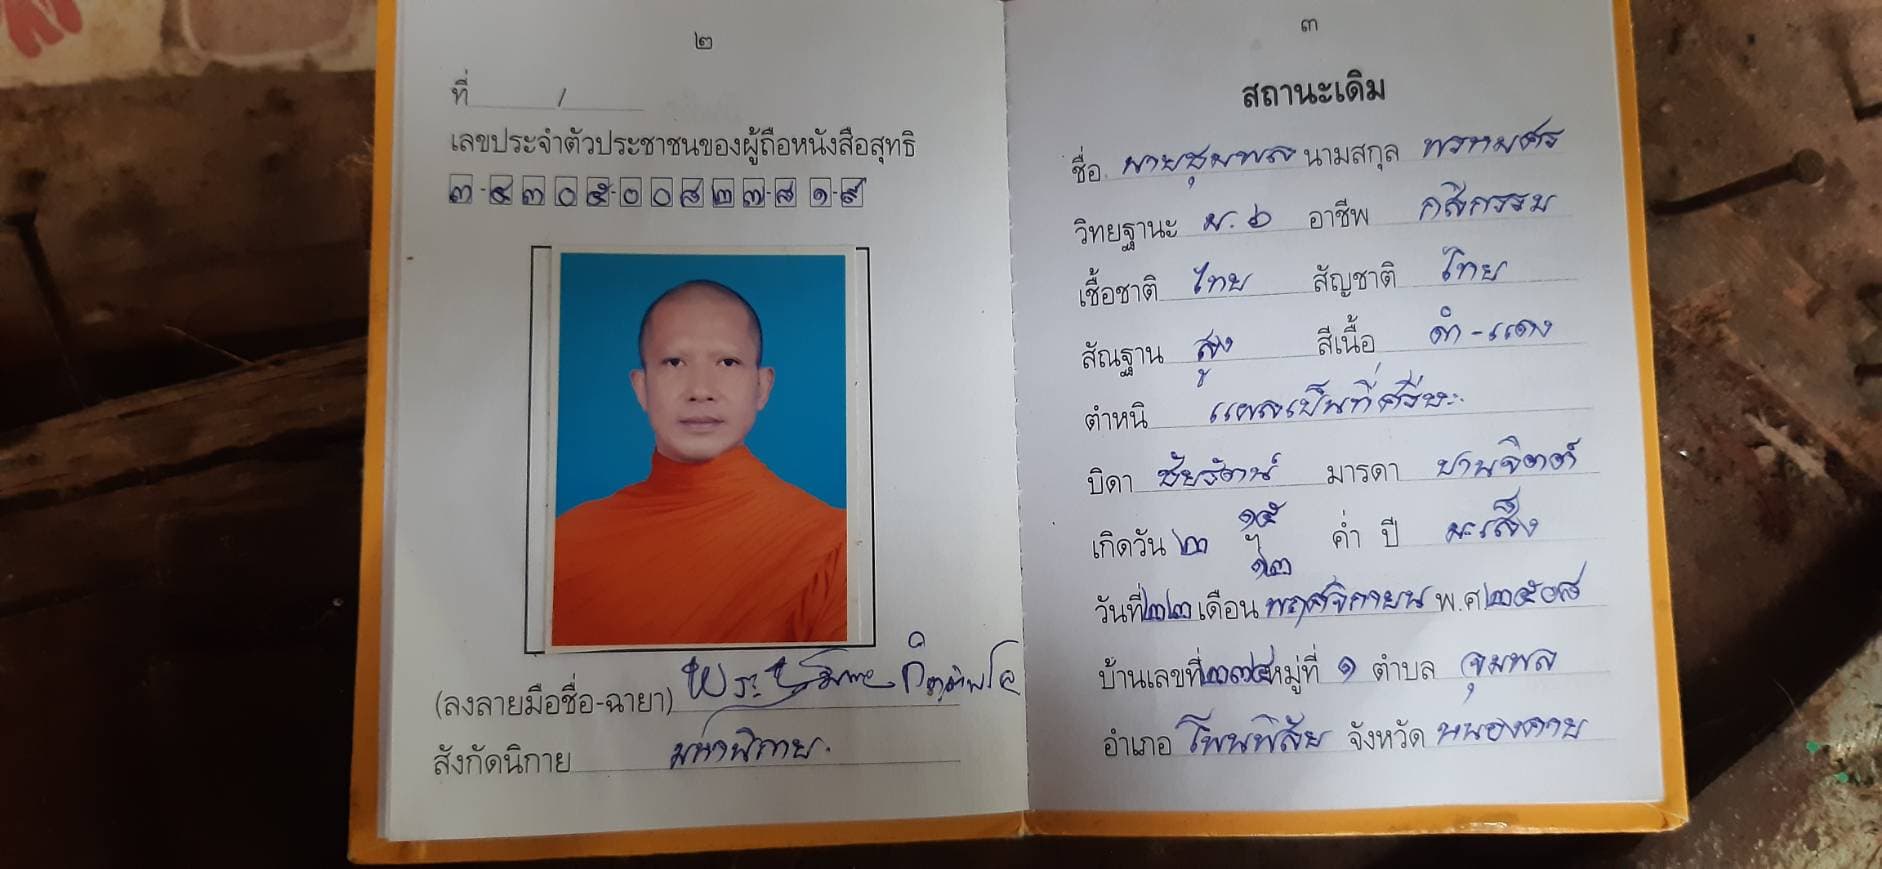 ๒
ที่ /
เลขประจำตัวประชาชนของผู้ถือหนังสือสุทธิ
(ลงลายมือชื่อ-ฉายา) พระ
สังกัดนิกาย มหานิกาย.
๓
สถานะเดิม
ชื่อ นายชุมพล นามสกุล พรหมศร
วิทยฐานะ ม.๖ อาชีพ กสิกรรม
เชื้อชาติ ไทย สัญชาติ ไทย
สัณฐาน สูง สีเนื้อ ดำ-แดง
ตำหนิ แผลเป็นที่ศรีษะ.
บิดา ชัยรัตน์ มารดา บานจิตต์
เกิดวัน ๒ ๑๕ ฯ ๑๒ ค่ำ ปี มะเส็ง
วันที่ ๒๒ เดือน พฤศจิกายน พ.ศ. ๒๕๐๘
บ้านเลขที่ หมู่ที่ ๑ ตำบล จุมพล
อำเภอ โพนพิสัย จังหวัด หนองคาย